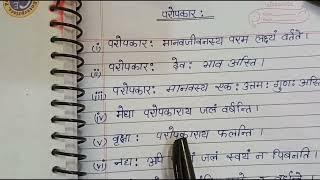 परोपकार:
(i) परोपकार: मानवजीवनस्य परम लक्ष्यं वर्तते ।
(ii) परोपकार: देव: भाव अस्ति ।
(iii) परोपकार: मानवस्य एक: उत्तम: गुण: अस्ति
(iv) मेघा परोपकाराय जलं वर्षन्ति ।
(v) वृक्षा: परोपकाराय फलन्ति ।
(vi) नद्य: अपि जलं स्वयं न पिबन्ति ।